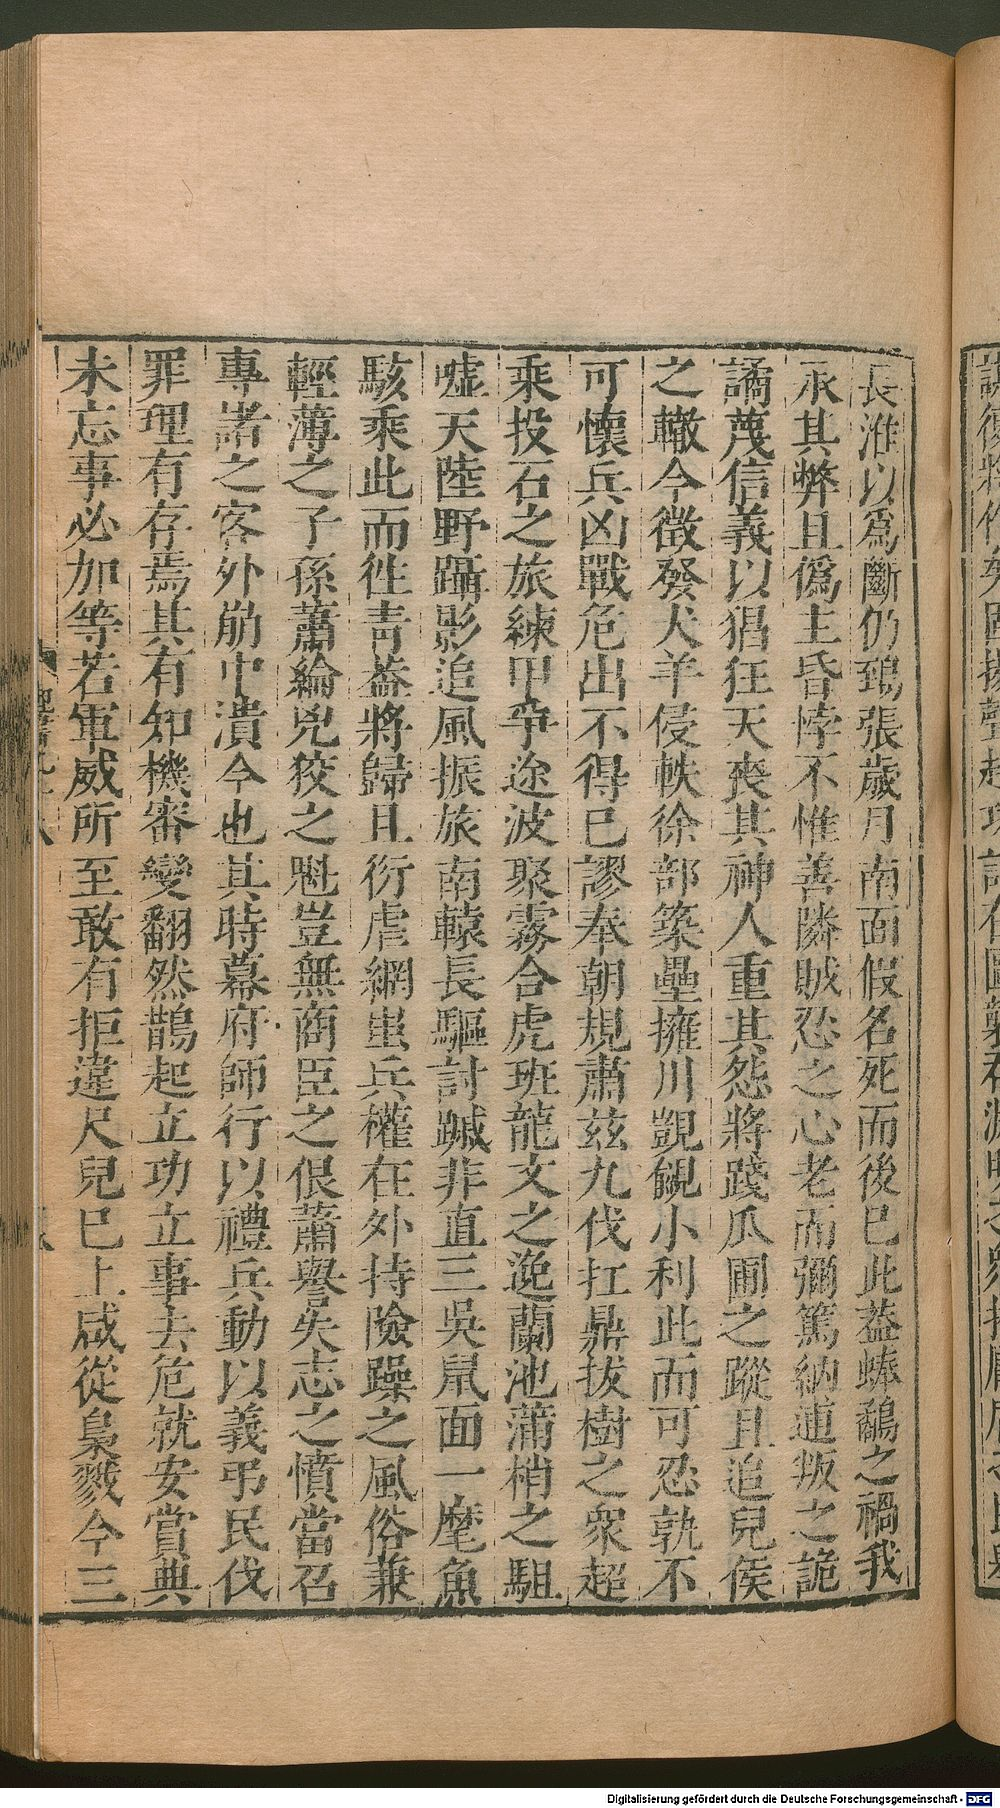 長淮以爲斷仍鵄張歲月南面假名死而後已此葢蜯鷸之禍我
承其弊且僞主昏悖不惟善隣賊忍之心老而彌篤納逋叛之詭
譎蔑信義以猖狂天喪其神人重其怨將踐瓜圃之蹤且追兒侯
之轍今徵發犬羊侵軼徐部築壘擁川覬覦小利此而可忍孰不
可懷兵凶戰危出不得已謬奉朝規肅兹九伐扛鼎拔樹之衆超
乘投石之旅練甲爭途波聚霧合虎班龍文之逸蘭池蒲梢之駔
嘘天陸野躡影追風振旅南轅長驅討䠞非直三吳鼠面一麾魚
駭乘此而徃青葢將歸且衍虐網䖝兵權在外持險躁之風俗兼
輕薄之子孫蕭綸兇狡之魁豈無商臣之佷蕭譽失志之憤當召
專諸之客外崩中潰今也其時幕府師行以禮兵動以義弔民伐
罪理有存焉其有知機審變翻然鵲起立功立事去危就安賞典
未忘事必加等若軍威所至敢有拒違尺兒已上咸從梟戮今三
Digitalisierung gefördert durch die Deutsche Forschungsgemeinschaft - DFG